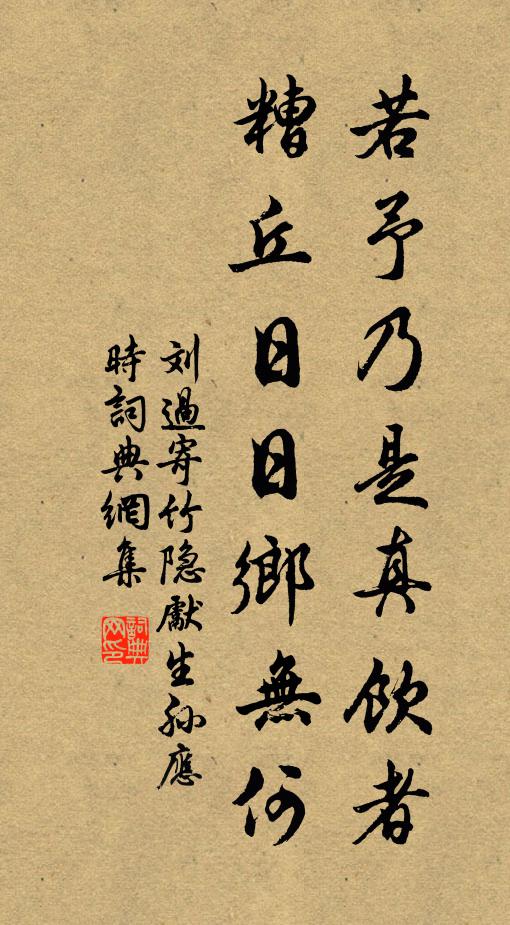 若予乃是真飲者
糟丘日日鄉無何
刘過寄竹隐獻生孙應
時詞典網集
詞典网印